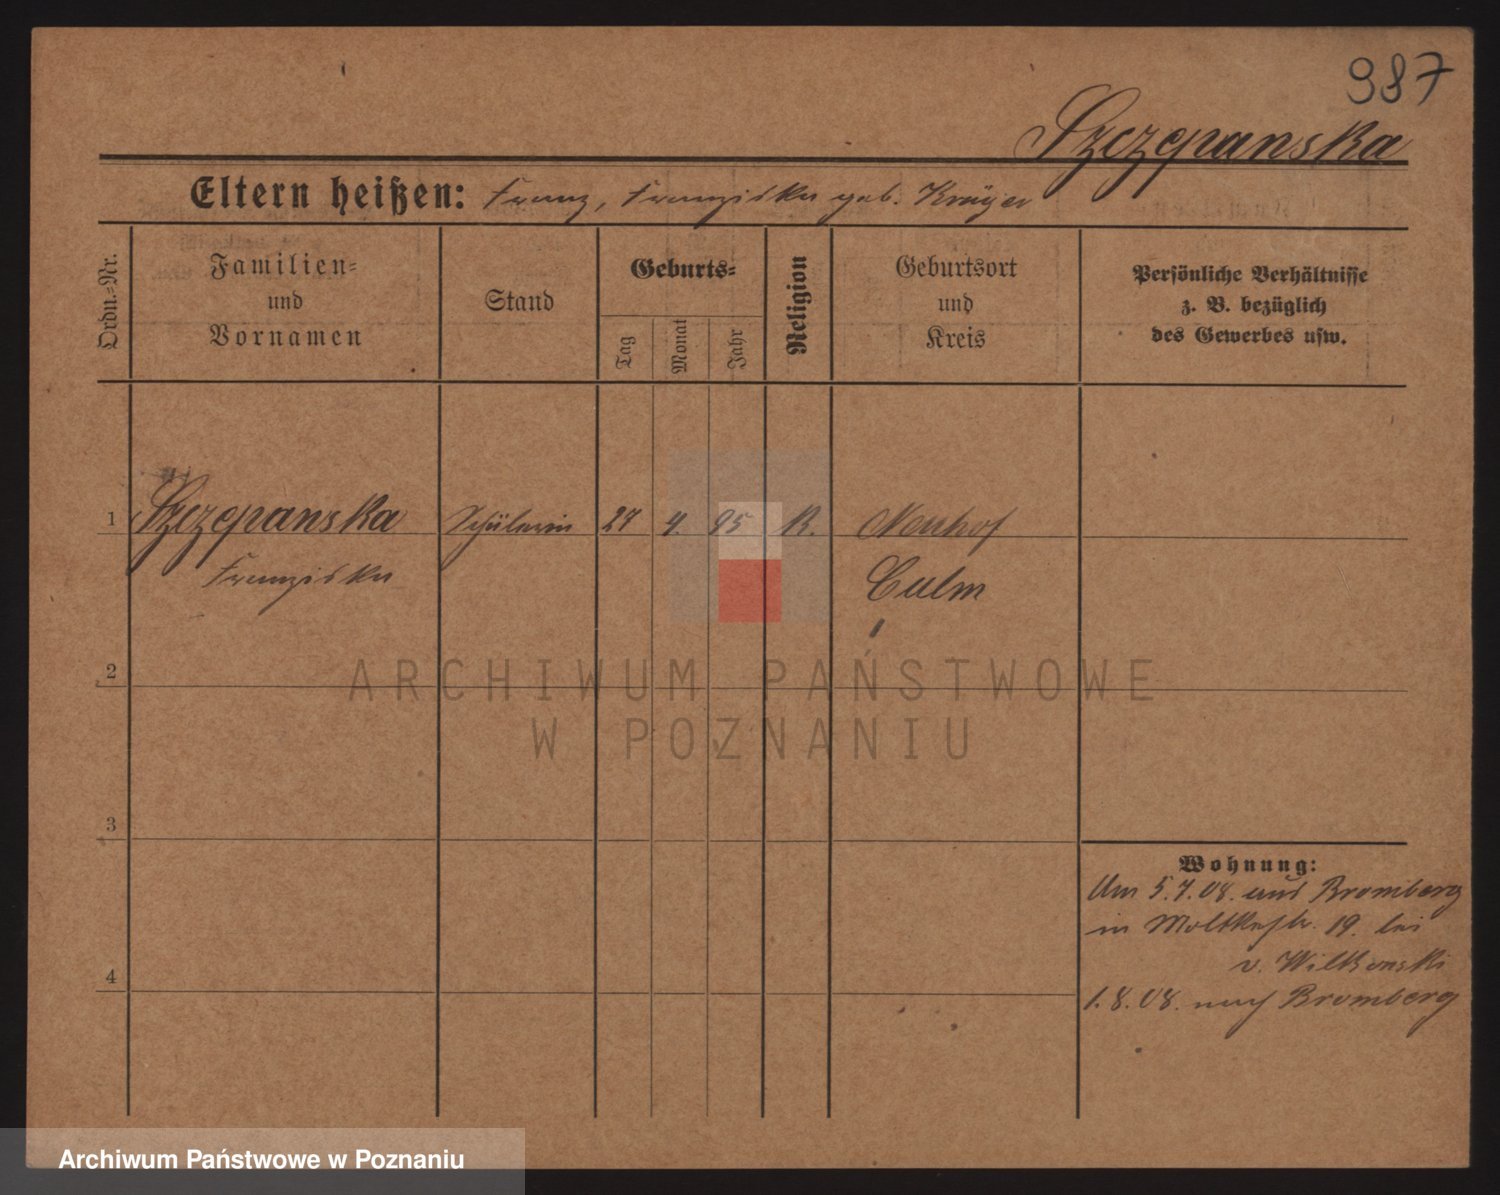 987
Szczepanska
Eltern heißen: Franz, Franziska geb. Krüger
Ordn.-Nr.
Familien- und Vornamen
Stand
Geburts-
Tag
Monat
Jahr
Religion
Geburtsort und Kreis
Persönliche Verhältnisse
z. B. bezüglich
des Gewerbes usw.
1 Szczepanska Schülerin 27 4. 95 K. Neuhof
Franziska Culm
2
3
4
Wohnung:
Am 5.7.08. aus Bromberg
in Moltkestr. 19. bei
v. Wilkonski
1.8.08. nach Bromberg
ARCHIWUM PAŃSTWOWE
W POZNANIU
Archiwum Państwowe w Poznaniu